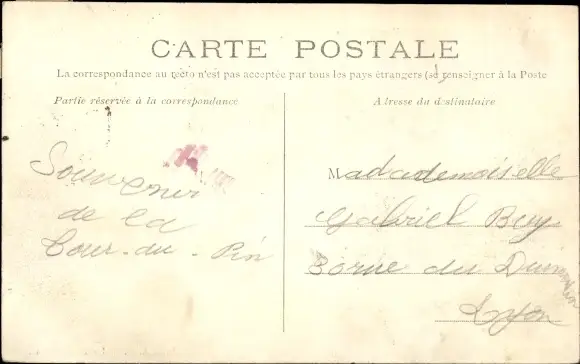 CARTE POSTALE
La correspondance au recto n'est pas acceptée par tous les pays étrangers (se renseigner à la Poste
Partie réservée à la correspondance
Adresse du destinataire
Souvenir
de la
Tour-du-Pin
Madademoiselle
Gabriel Buy
3 du
Lyon